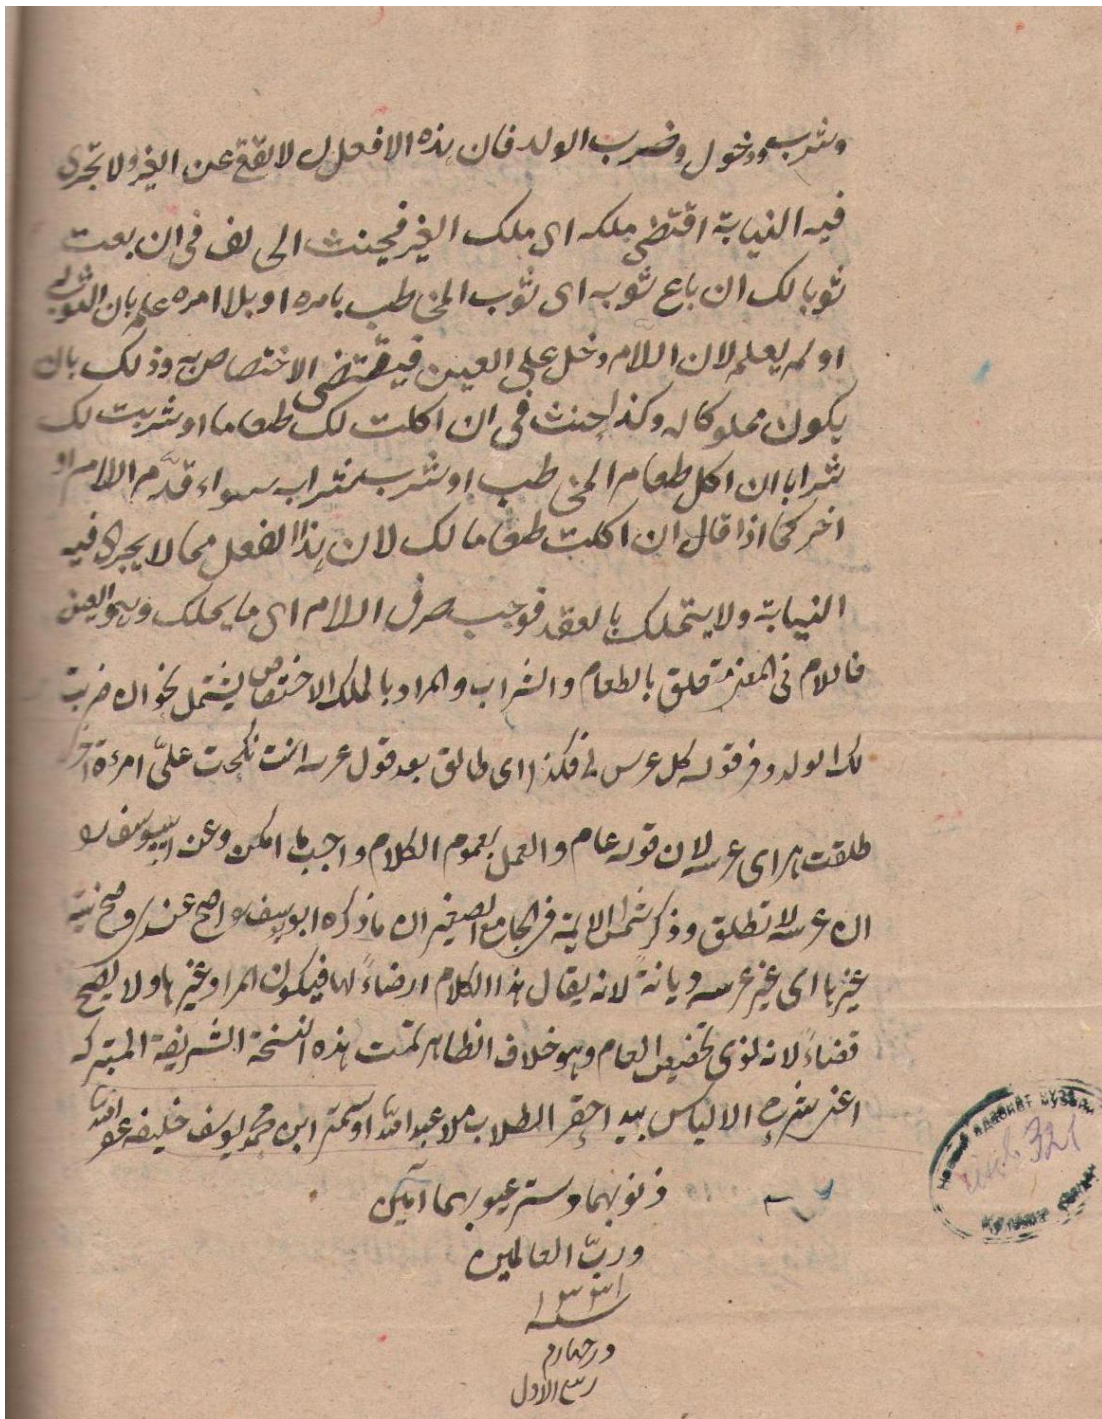 وشرب ودخول وضرب الولد فان هذه الافعال لا تقع عن الغير ولا تجرى
فيه النيابة اقتضى ملكه اى ملك الغير فيحنث الحالف فى ان بعت
ثوبا لك ان باع ثوبه اى ثوب المخاطب بامره او بلا امره علم بان الثوب له
او لم يعلم لان اللام دخل على العين فيقتضى الاختصاص به وذلك بان
يكون مملوكا له وكذا حنث فى ان اكلت لك طعاما او شربت لك
شرابا ان اكل طعام المخاطب او شرب شرابه سواء قدّم اللام او
اخر كما اذا قال ان اكلت طعاما لك لان هذا الفعل مما لا يجرى فيه
النيابة ولا يتملك بالعقد فوجب صرف اللام اى ما يملك وهو العين
فاللام فى متعلق بالطعام والشراب والمراد بالملك الاختصاص ليشتمل نحو ان ضربت
لك الولد وفى قوله كل عرس لى فكذا اى طالق بعد قول عرسه انت نكحت علىّ امرءة اخرى
طلقت هى اى عرسه لان قوله عام والعمل بعموم الكلام واجب ما امكن وعن ابى يوسف
ان عرسه لا تطلق وذكر شمس الايمة فى الجامع الصغير ان ما ذكره ابو يوسف اصح عندى وصح نية
غيرها اى غير عرسه ديانة لانه يقال هذا الكلام ارضاءً لها فيكون المراد غيرها ولا يصح
قضاءً لانه نوى تخصيص العام وهو خلاف الظاهر تمت هذه النسخة الشريفة المتبركة
اعنى شرح الالياس بيد احقر الطلاب ملا عبد الله ابن محمد يوسف خليفه غفر الله
ذنوبهما وستر عيوبهما آمين
ورب العالمين
سنه
در چهارم
ربيع الاول
321